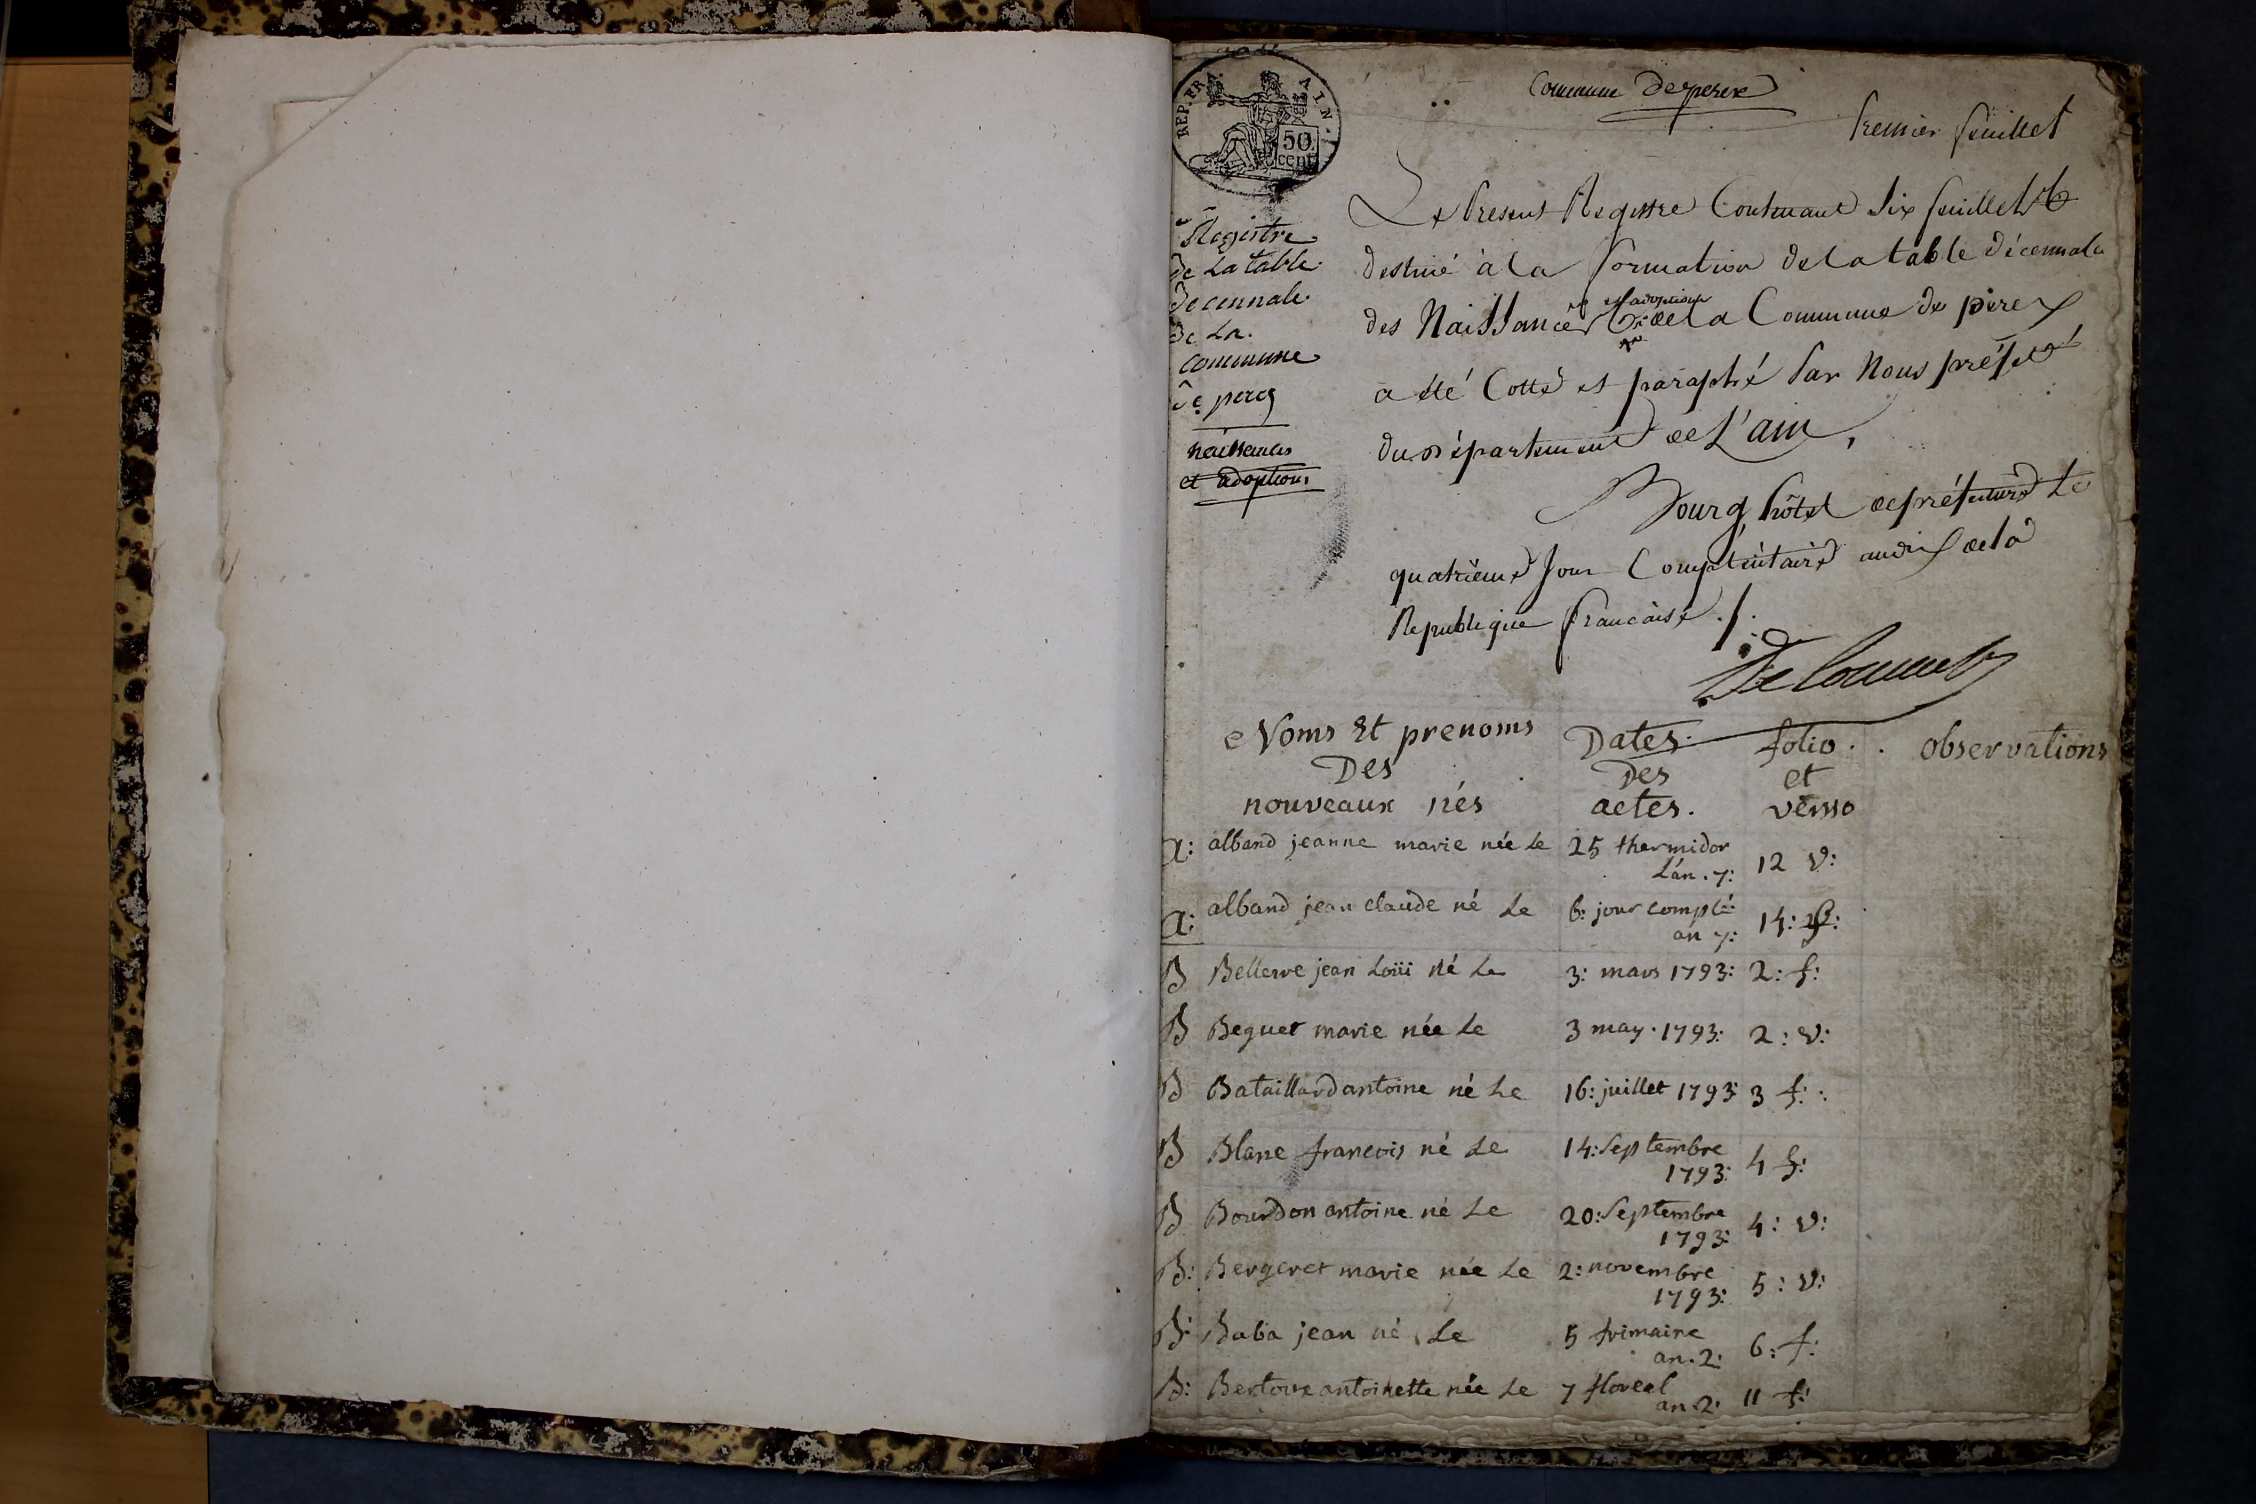 Commune de perex
Premier feuillet
REP. FRA. AIN.
50 cent
Registre
de La table
decennale
de La
commune
de perex
naissances
et adoptions
Le Present Registre Contenant Six feuillets
destiné à la formation de la table décennale
des Naissances et adoptions de la Commune de pérex
a été Cotté et paraphé Par Nous préfet
du département de L'ain,
Bourg hôtel de préfecture Le
quatrieme Jour Complémentaire an dix de la
Republique francaise ./.
Noms Et prenoms Des nouveaux nés
Dates Des actes.
folio et verso
observations
a: alband jeanne marie née Le 25 thermidor L'an.7: 12 v:
a: alband jean claude né Le 6: jour complé: an 7: 14: f:
B Bellerve jean Loüi Né Le 3: mars 1793: 2: f:
B Beguet marie née Le 3 may. 1793: 2: v:
B Bataillard antoine né Le 16: juillet 1793: 3 f:
B Blanc francois né Le 14: Septembre 1793: 4 f:
B Bourdon antoine né Le 20: Septembre 1793: 4: v:
B: Bergeret marie née Le 2: novembre 1793: 5: v:
B: Baba jean né Le 5 frimaire an.2: 6: f:
B: Bertoux antoinette née Le 7 floreal an.2: 11 f: